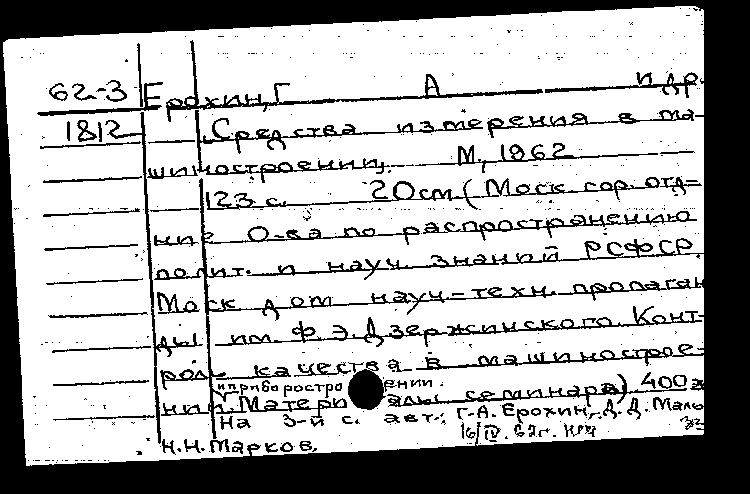 62-3 Ерохин, Г А и др.
1812 Средства измерения в ма-
шиностроении. М, 1962
123 с. 20см (Моск гор. отд=
ние О-ва по распространению
полит. и науч. знаний РСФСР.
Моск дом науч=техн. пропаган
ды им. Ф. Э. Дзержинского. Конт-
роль качества в машинострое-
и приборостроении.
нии. Материалы семинара) 400э
На 3-й с. авт.: Г.А. Ерохин, Д.Д. Малы
Н.Н. Марков.
16/IV. 62г.